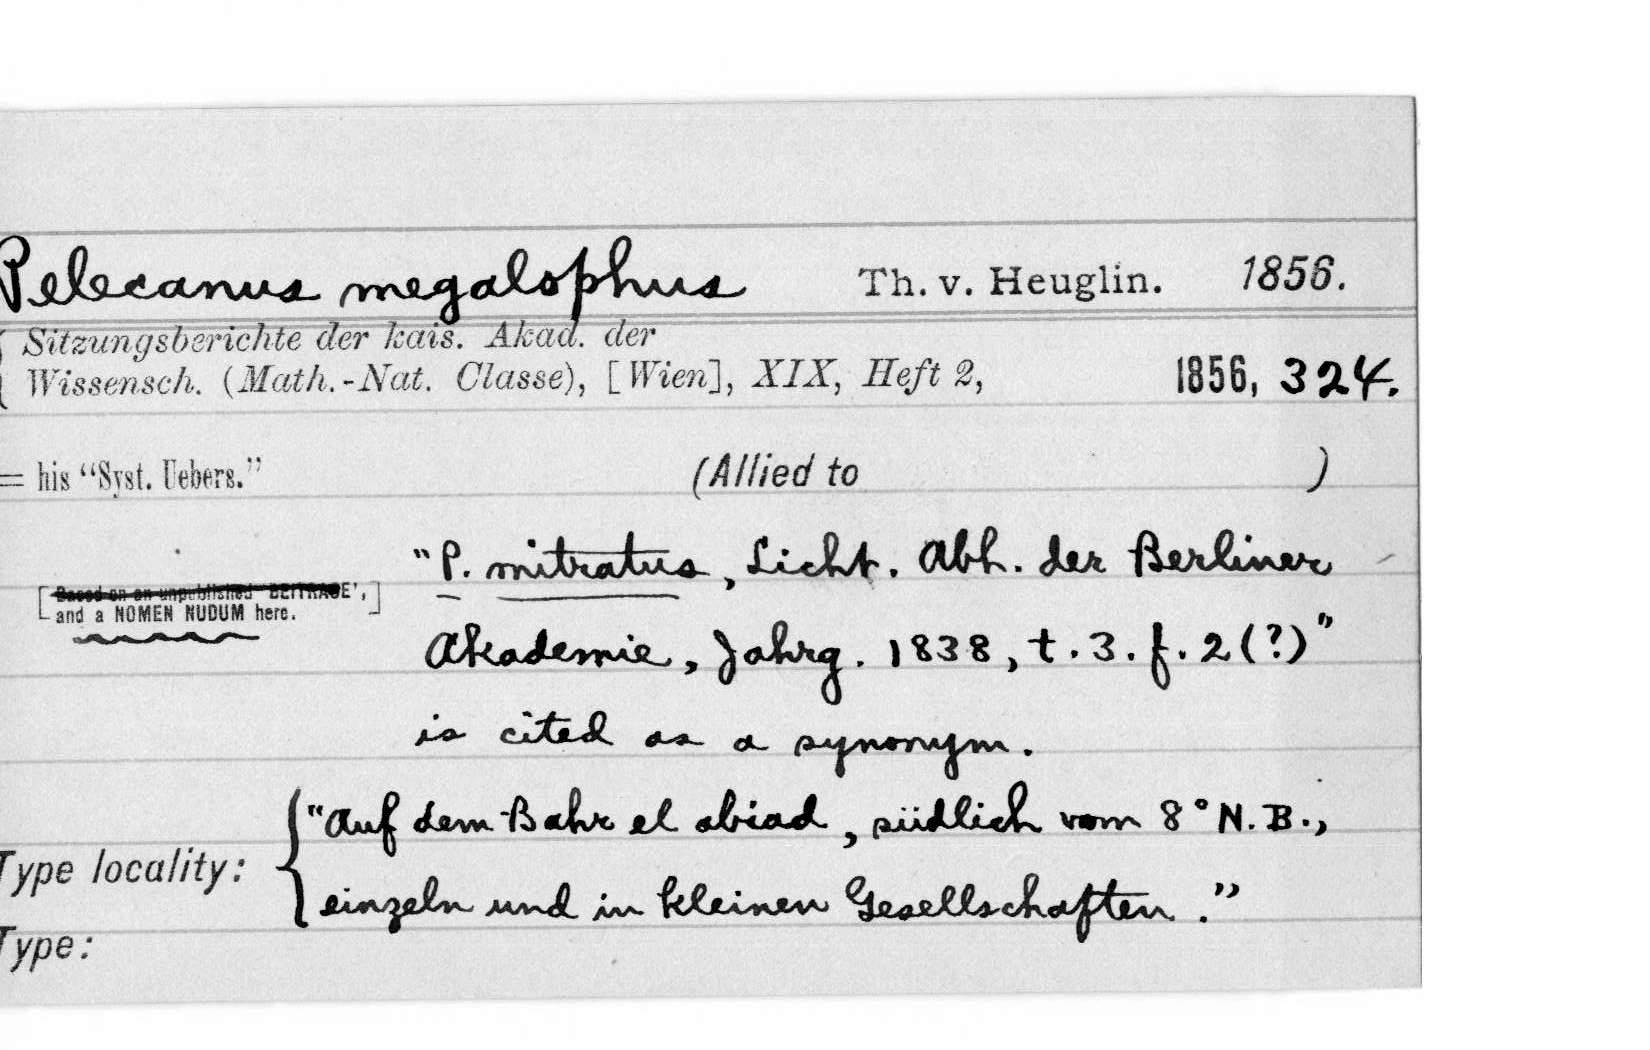 Pelecanus megalophus Th. v. Heuglin. 1856.
Sitzungsberichte der kais. Akad. der
Wissensch. (Math.-Nat. Classe), [Wien], XIX, Heft 2, 1856, 324.
= his "Syst. Uebers." (Allied to )
"P. mitratus, Licht. Abh. der Berliner
[Based on an unpublished 'BEITRAGE',]
and a NOMEN NUDUM here.
Akademie, Jahrg. 1838, t. 3. f. 2 (?)"
is cited as a synonym.
"Auf dem Bahr el abiad, südlich vom 8° N. B.,
Type locality:
einzeln und in kleinen Gesellschaften."
Type: